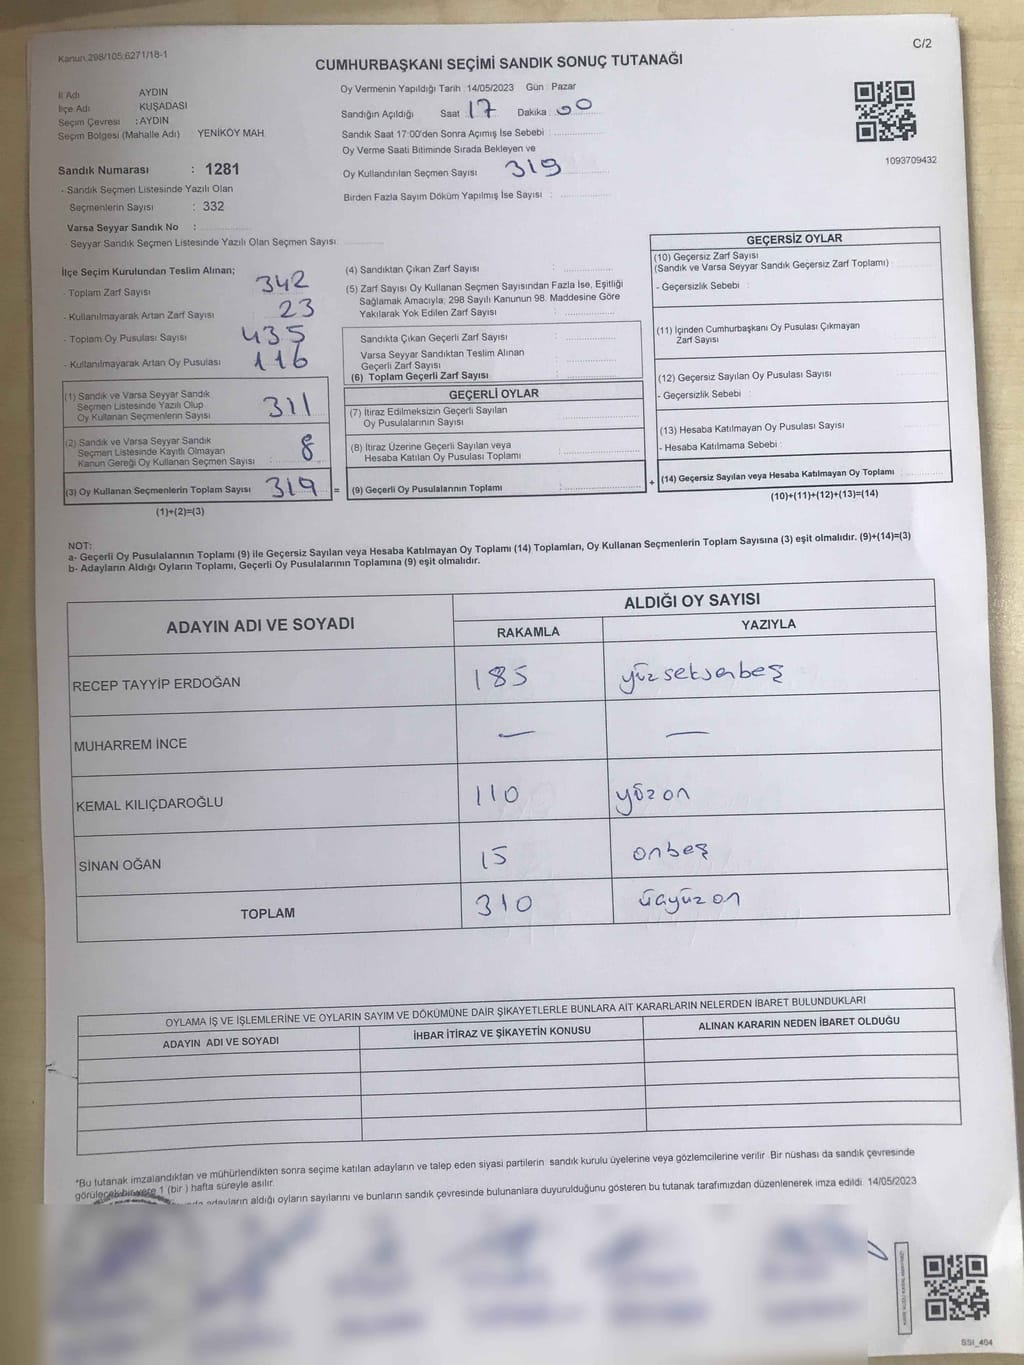 Kanun 298/105;6271/18-1
C/2
CUMHURBAŞKANI SEÇİMİ SANDIK SONUÇ TUTANAĞI
İl Adı AYDIN
İlçe Adı KUŞADASI
Seçim Çevresi : AYDIN
Seçim Bölgesi (Mahalle Adı) YENİKÖY MAH.
Sandık Numarası : 1281
- Sandık Seçmen Listesinde Yazılı Olan
Seçmenlerin Sayısı : 332
Varsa Seyyar Sandık No :
- Seyyar Sandık Seçmen Listesinde Yazılı Olan Seçmen Sayısı
Oy Vermenin Yapıldığı Tarih : 14/05/2023 Gün : Pazar
Sandığın Açıldığı Saat : 17 Dakika : 00
Sandık Saat 17:00'den Sonra Açımış İse Sebebi :
Oy Verme Saati Bitiminde Sırada Bekleyen ve
Oy Kullandırılan Seçmen Sayısı 319
Birden Fazla Sayım Döküm Yapılmış İse Sayısı :
1093709432
İlçe Seçim Kurulundan Teslim Alınan;
- Toplam Zarf Sayısı 342
- Kullanılmayarak Artan Zarf Sayısı 23
- Toplam Oy Pusulası Sayısı 435
- Kullanılmayarak Artan Oy Pusulası 116
(1) Sandık ve Varsa Seyyar Sandık
Seçmen Listesinde Yazılı Olup
Oy Kullanan Seçmenlerin Sayısı 311
(2) Sandık ve Varsa Seyyar Sandık
Seçmen Listesinde Kayıtlı Olmayan
Kanun Gereği Oy Kullanan Seçmen Sayısı : 8
(3) Oy Kullanan Seçmenlerin Toplam Sayısı 319 =
(1)+(2)=(3)
(4) Sandıktan Çıkan Zarf Sayısı :
(5) Zarf Sayısı Oy Kullanan Seçmen Sayısından Fazla İse, Eşitliği
Sağlamak Amacıyla; 298 Sayılı Kanunun 98. Maddesine Göre
Yakılarak Yok Edilen Zarf Sayısı :
Sandıkta Çıkan Geçerli Zarf Sayısı :
Varsa Seyyar Sandıktan Teslim Alınan
Geçerli Zarf Sayısı :
(6) Toplam Geçerli Zarf Sayısı :
GEÇERLİ OYLAR
(7) İtiraz Edilmeksizin Geçerli Sayılan
Oy Pusulalarının Sayısı :
(8) İtiraz Üzerine Geçerli Sayılan veya
Hesaba Katılan Oy Pusulası Toplamı :
(9) Geçerli Oy Pusulalarının Toplamı : +
GEÇERSİZ OYLAR
(10) Geçersiz Zarf Sayısı
(Sandık ve Varsa Seyyar Sandık Geçersiz Zarf Toplamı) :
- Geçersizlik Sebebi :
(11) İçinden Cumhurbaşkanı Oy Pusulası Çıkmayan
Zarf Sayısı :
(12) Geçersiz Sayılan Oy Pusulası Sayısı :
- Geçersizlik Sebebi :
(13) Hesaba Katılmayan Oy Pusulası Sayısı :
- Hesaba Katılmama Sebebi :
(14) Geçersiz Sayılan veya Hesaba Katılmayan Oy Toplamı :
(10)+(11)+(12)+(13)=(14)
NOT:
a- Geçerli Oy Pusulalarının Toplamı (9) ile Geçersiz Sayılan veya Hesaba Katılmayan Oy Toplamı (14) Toplamları, Oy Kullanan Seçmenlerin Toplam Sayısına (3) eşit olmalıdır. (9)+(14)=(3)
b- Adayların Aldığı Oyların Toplamı, Geçerli Oy Pusulalarının Toplamına (9) eşit olmalıdır.
ADAYIN ADI VE SOYADI
ALDIĞI OY SAYISI
RAKAMLA YAZIYLA
RECEP TAYYİP ERDOĞAN 185 yüzseksenbeş
MUHARREM İNCE — —
KEMAL KILIÇDAROĞLU 110 yüzon
SİNAN OĞAN 15 onbeş
TOPLAM 310 üçyüzon
OYLAMA İŞ VE İŞLEMLERİNE VE OYLARIN SAYIM VE DÖKÜMÜNE DAİR ŞİKAYETLERLE BUNLARA AİT KARARLARIN NELERDEN İBARET BULUNDUKLARI
ADAYIN ADI VE SOYADI İHBAR İTİRAZ VE ŞİKAYETİN KONUSU ALINAN KARARIN NEDEN İBARET OLDUĞU
*Bu tutanak imzalandıktan ve mühürlendikten sonra seçime katılan adayların ve talep eden siyasi partilerin sandık kurulu üyelerine veya gözlemcilerine verilir. Bir nüshası da sandık çevresinde
görülecek bir yere 1 (bir) hafta süreyle asılır.
adayların aldığı oyların sayılarını ve bunların sandık çevresinde bulunanlara duyurulduğunu gösteren bu tutanak tarafımızdan düzenlenerek imza edildi. 14/05/2023
SSI_404